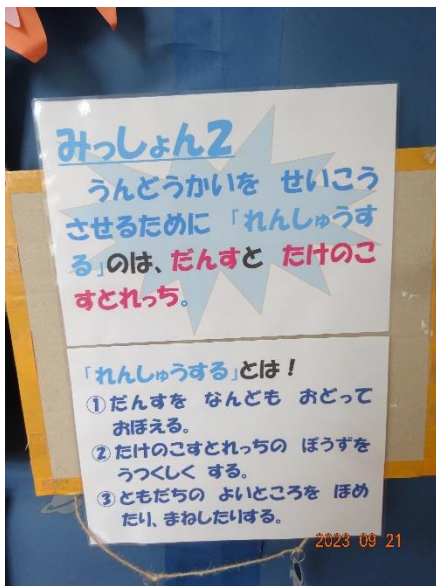 みっしょん2
うんどうかいを せいこう
させるために 「れんしゅうす
る」のは、だんすと たけのこ
すとれっち。
「れんしゅうする」とは!
①だんすを なんども おどって
おぼえる。
②たけのこすとれっちの ぽうずを
うつくしく する。
③ともだちの よいところを ほめ
たり、まねしたりする。
2023 09 21